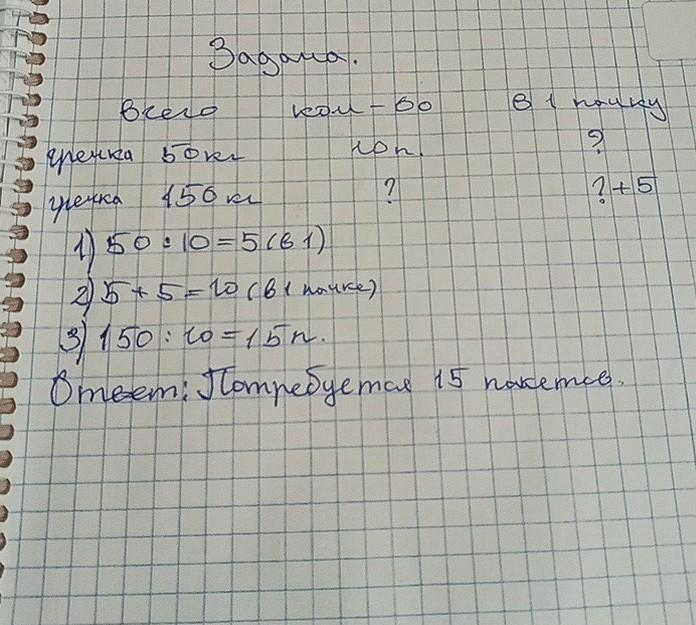 Задача.
Всего кол-во в 1 пачку
гречка 50кг 10п. ?
гречка 150кг ? ?+5
1) 50:10=5(в 1)
2) 5+5=10(в 1 пачке)
3) 150:10=15п.
Ответ: Потребуется 15 пакетов.